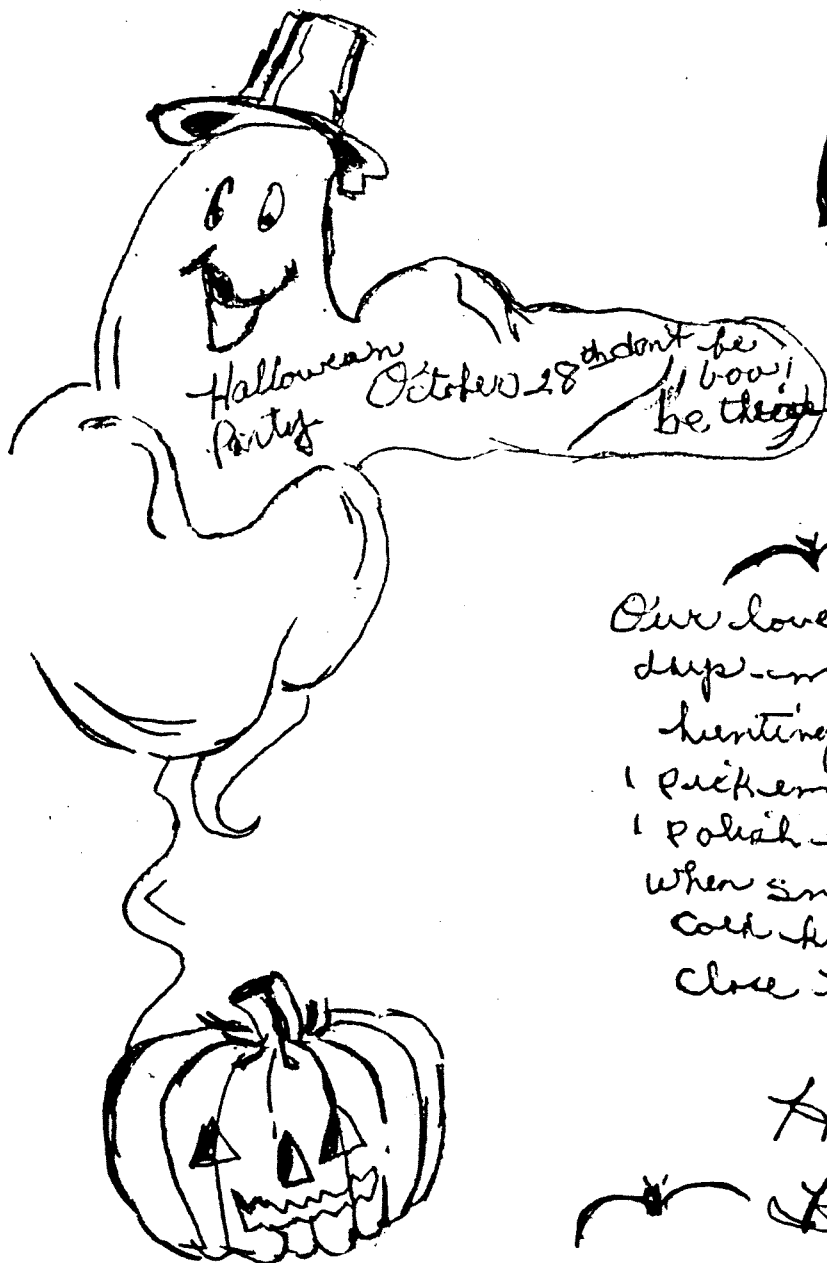 Halloween
Party
October 28th don't be
boo!
be there
Our love
days
hunting
I pick em
I polish
when sn
Cold
Close